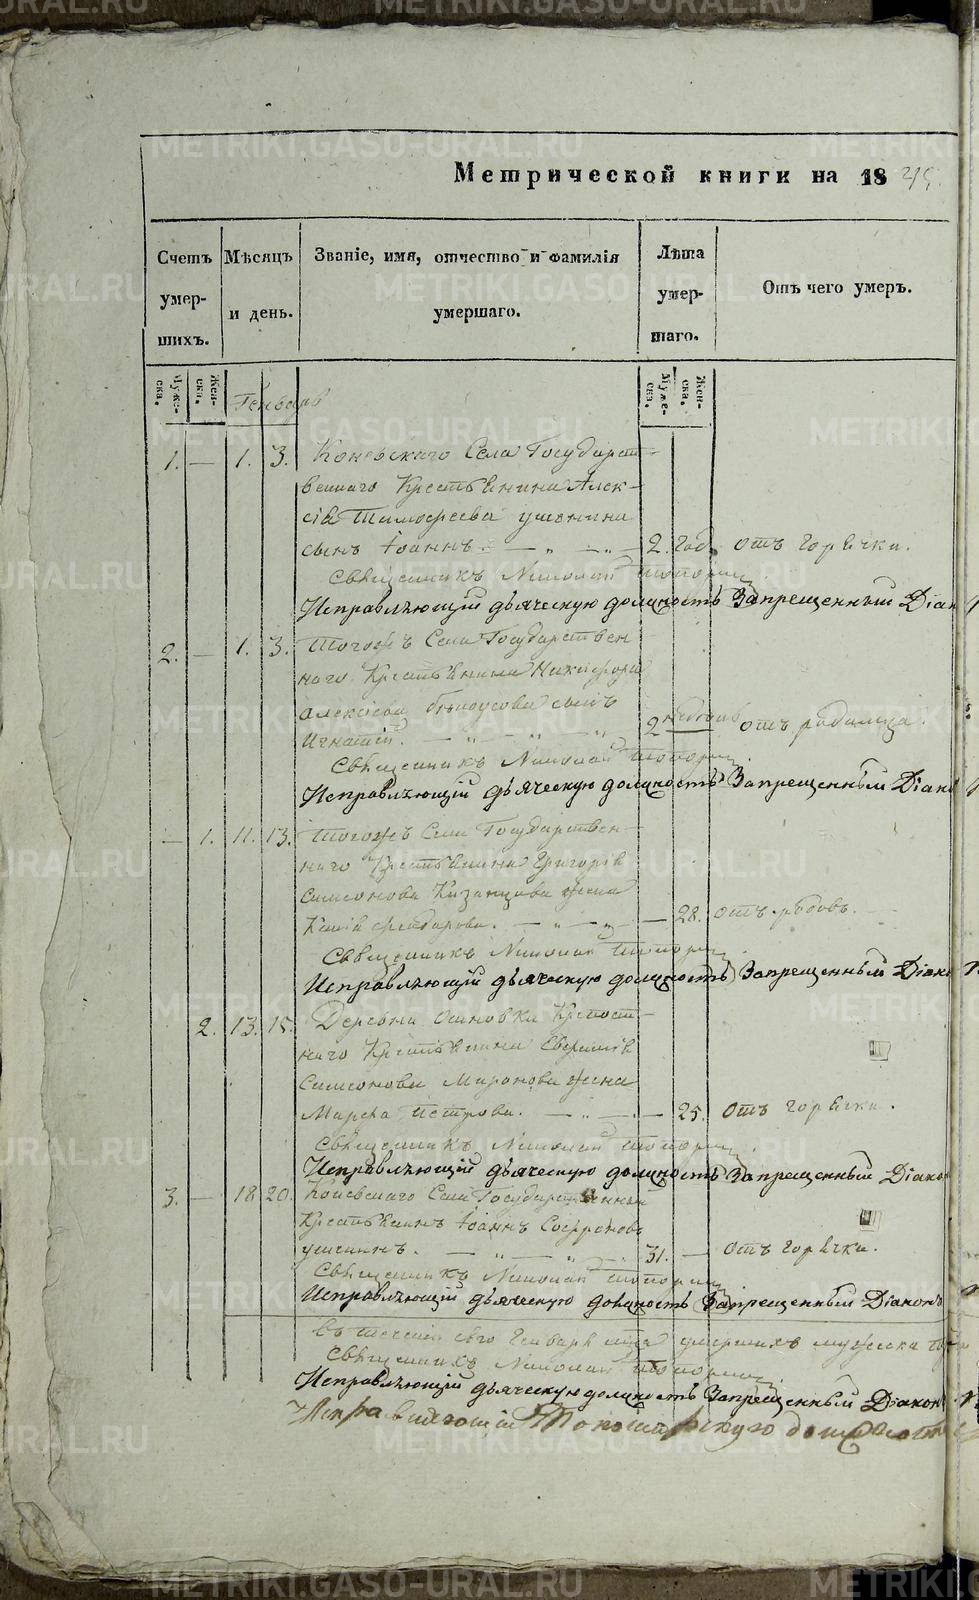 Метрической книги на 1845.
Счетъ умершихъ.
Мѣсяцъ и день.
Званіе, имя, отчество и фамилія умершаго.
Лѣта умершаго.
Отъ чего умеръ.
Мужеска.
Женска.
Мужеска.
Женска.
Генварь
1. — 1. 3. Коневскаго Села Государст-
веннаго Крестьянина Алек-
сія Тимофеева
сынъ Іоаннъ. — „ — „ — 2. год. отъ горячки.
Священникъ Николай
Исправляющій дьяческую должность Запрещенный Діакон
2. — 1. 3. Тогожъ Села Государствен
наго Крестьянина Никифора
Алексіева Бѣлоусова сынъ
Игнатій. — „ — „ — „ 2 недѣль отъ родимца.
Священникъ Николай
Исправляющій дьяческую должность Запрещенный Діакон
— 1. 11. 13. Тогоже Села Государствен-
наго Крестьянина Григорія
Симеонова Казанцова жена
— „ — „ — 28. отъ родовъ.
Священникъ Николай
Исправляющій дьяческую должность Запрещенный Діакон
2. 13. 15. Деревни Осиновки Крѣпост-
наго Крестьянина
Симеонова Миронова жена
Марфа Петрова. — „ — 25. отъ горячки.
Священникъ Николай
Исправляющій дьяческую должность Запрещенный Діакон
3. — 18 20. Коневскаго Села Государственной
Крестьянинъ Іоаннъ Софроновъ
— „ — „ — 31. — отъ горячки.
Священникъ Николай
Исправляющій дьяческую должность Запрещенный Діаконъ
въ теченіи сего Генваря м-ца умершихъ мужеска
Священникъ Николай
Исправляющій дьяческую должность Запрещенный Діакон
Исправляющій Пономарскую должность
METRIKI.GASO-URAL.RU